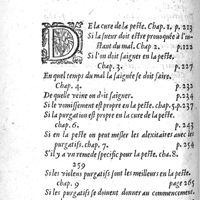 De la cure de la peste. Chap. 1. p. 213
Si la sueur doit estre prouoquée à l'in-
stant du mal. Chap 2. p.122
Si l'on doit saigner en la peste,
Chap. 3. p.227
En quel temps du mal la saignée se doit faire.
Chap. 4. p.232
De quelle veine on doit saigner. p.234
Si le vomissement est propre en la peste. chap. 5.p.237
Si la purgation est propre en la cure de la peste.
chap. 6. p.243
Si en la peste on peut mesler les alexitaires auec les
purgatifs. chap. 7. p.254
S'il y a vn remede specific pour la peste. cha. 8.
259
Si les violens purgatifs sont les meilleurs en la peste.
chap. 9 page 265
Si les purgatifs se doiuent donner au commencement,